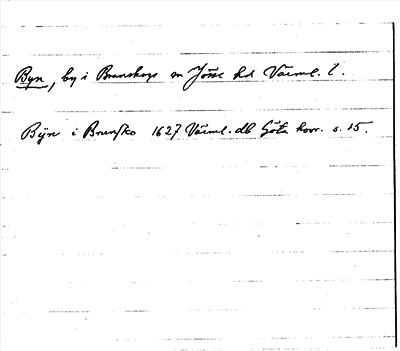 Byn, by i Brunskogs sn Jösse hd Värml. l.
Byn i Brunsko 1627 Värml. db Göta hovr. s. 15.